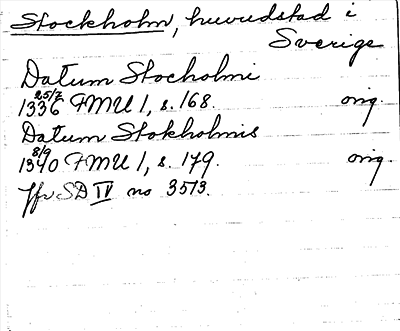 Stockholm, huvudstad i
Sverige
Datum Stocholmi
25/7
1336 FMU I, s. 168. orig.
Datum Stokholmis
8/9
1340 FMU I, s. 179. orig.
Jfr SD IV no 3513.